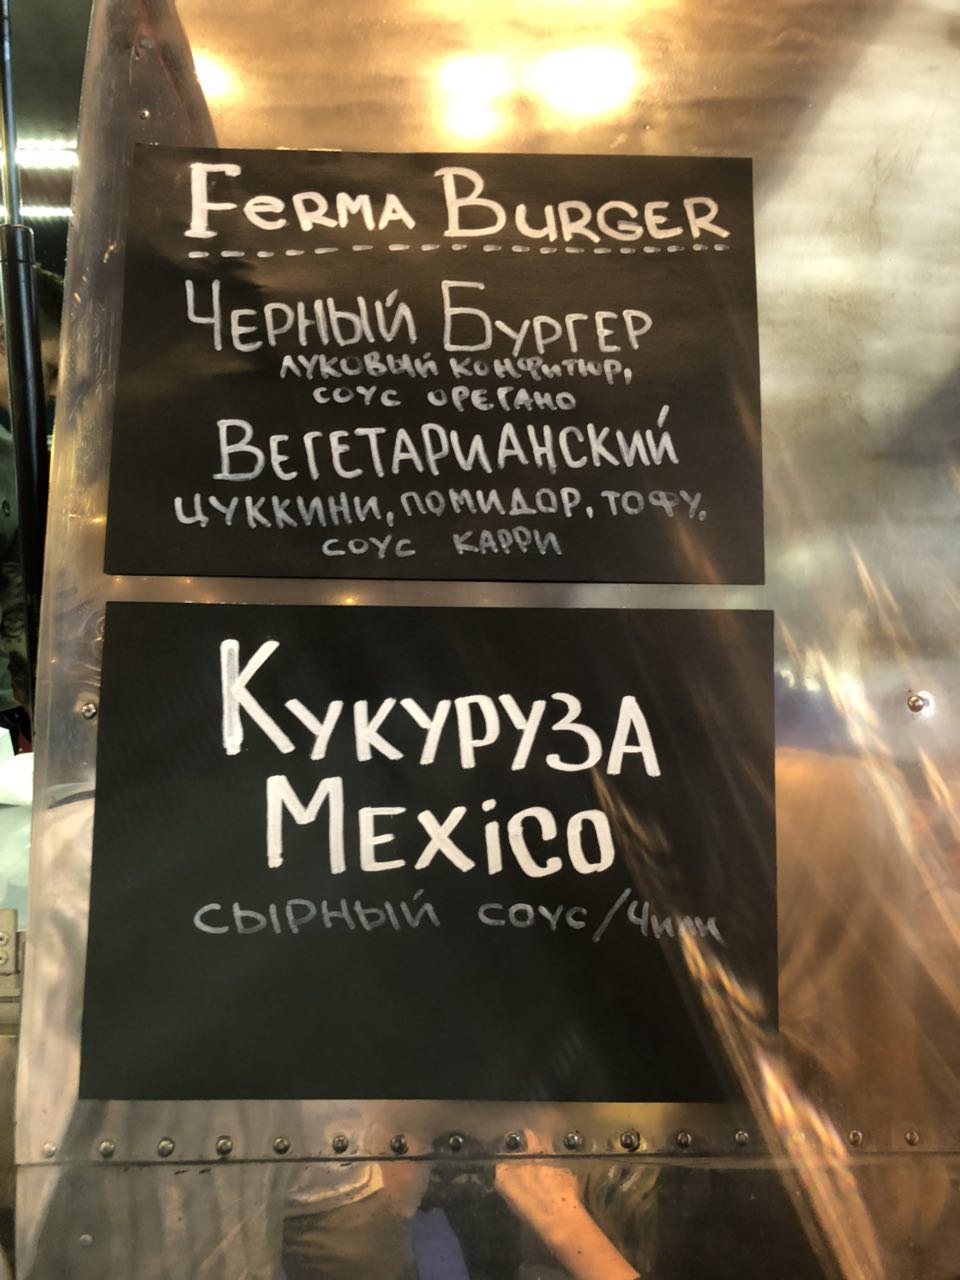 FERMA BURGER
ЧЕРНЫЙ БУРГЕР
ЛУКОВЫЙ КОНФИТЮР,
СОУС ОРЕГАНО
ВЕГЕТАРИАНСКИЙ
ЦУККИНИ, ПОМИДОР, ТОФУ,
СОУС КАРРИ
КУКУРУЗА
MEXiCO
СЫРНЫЙ СОУС/Чили